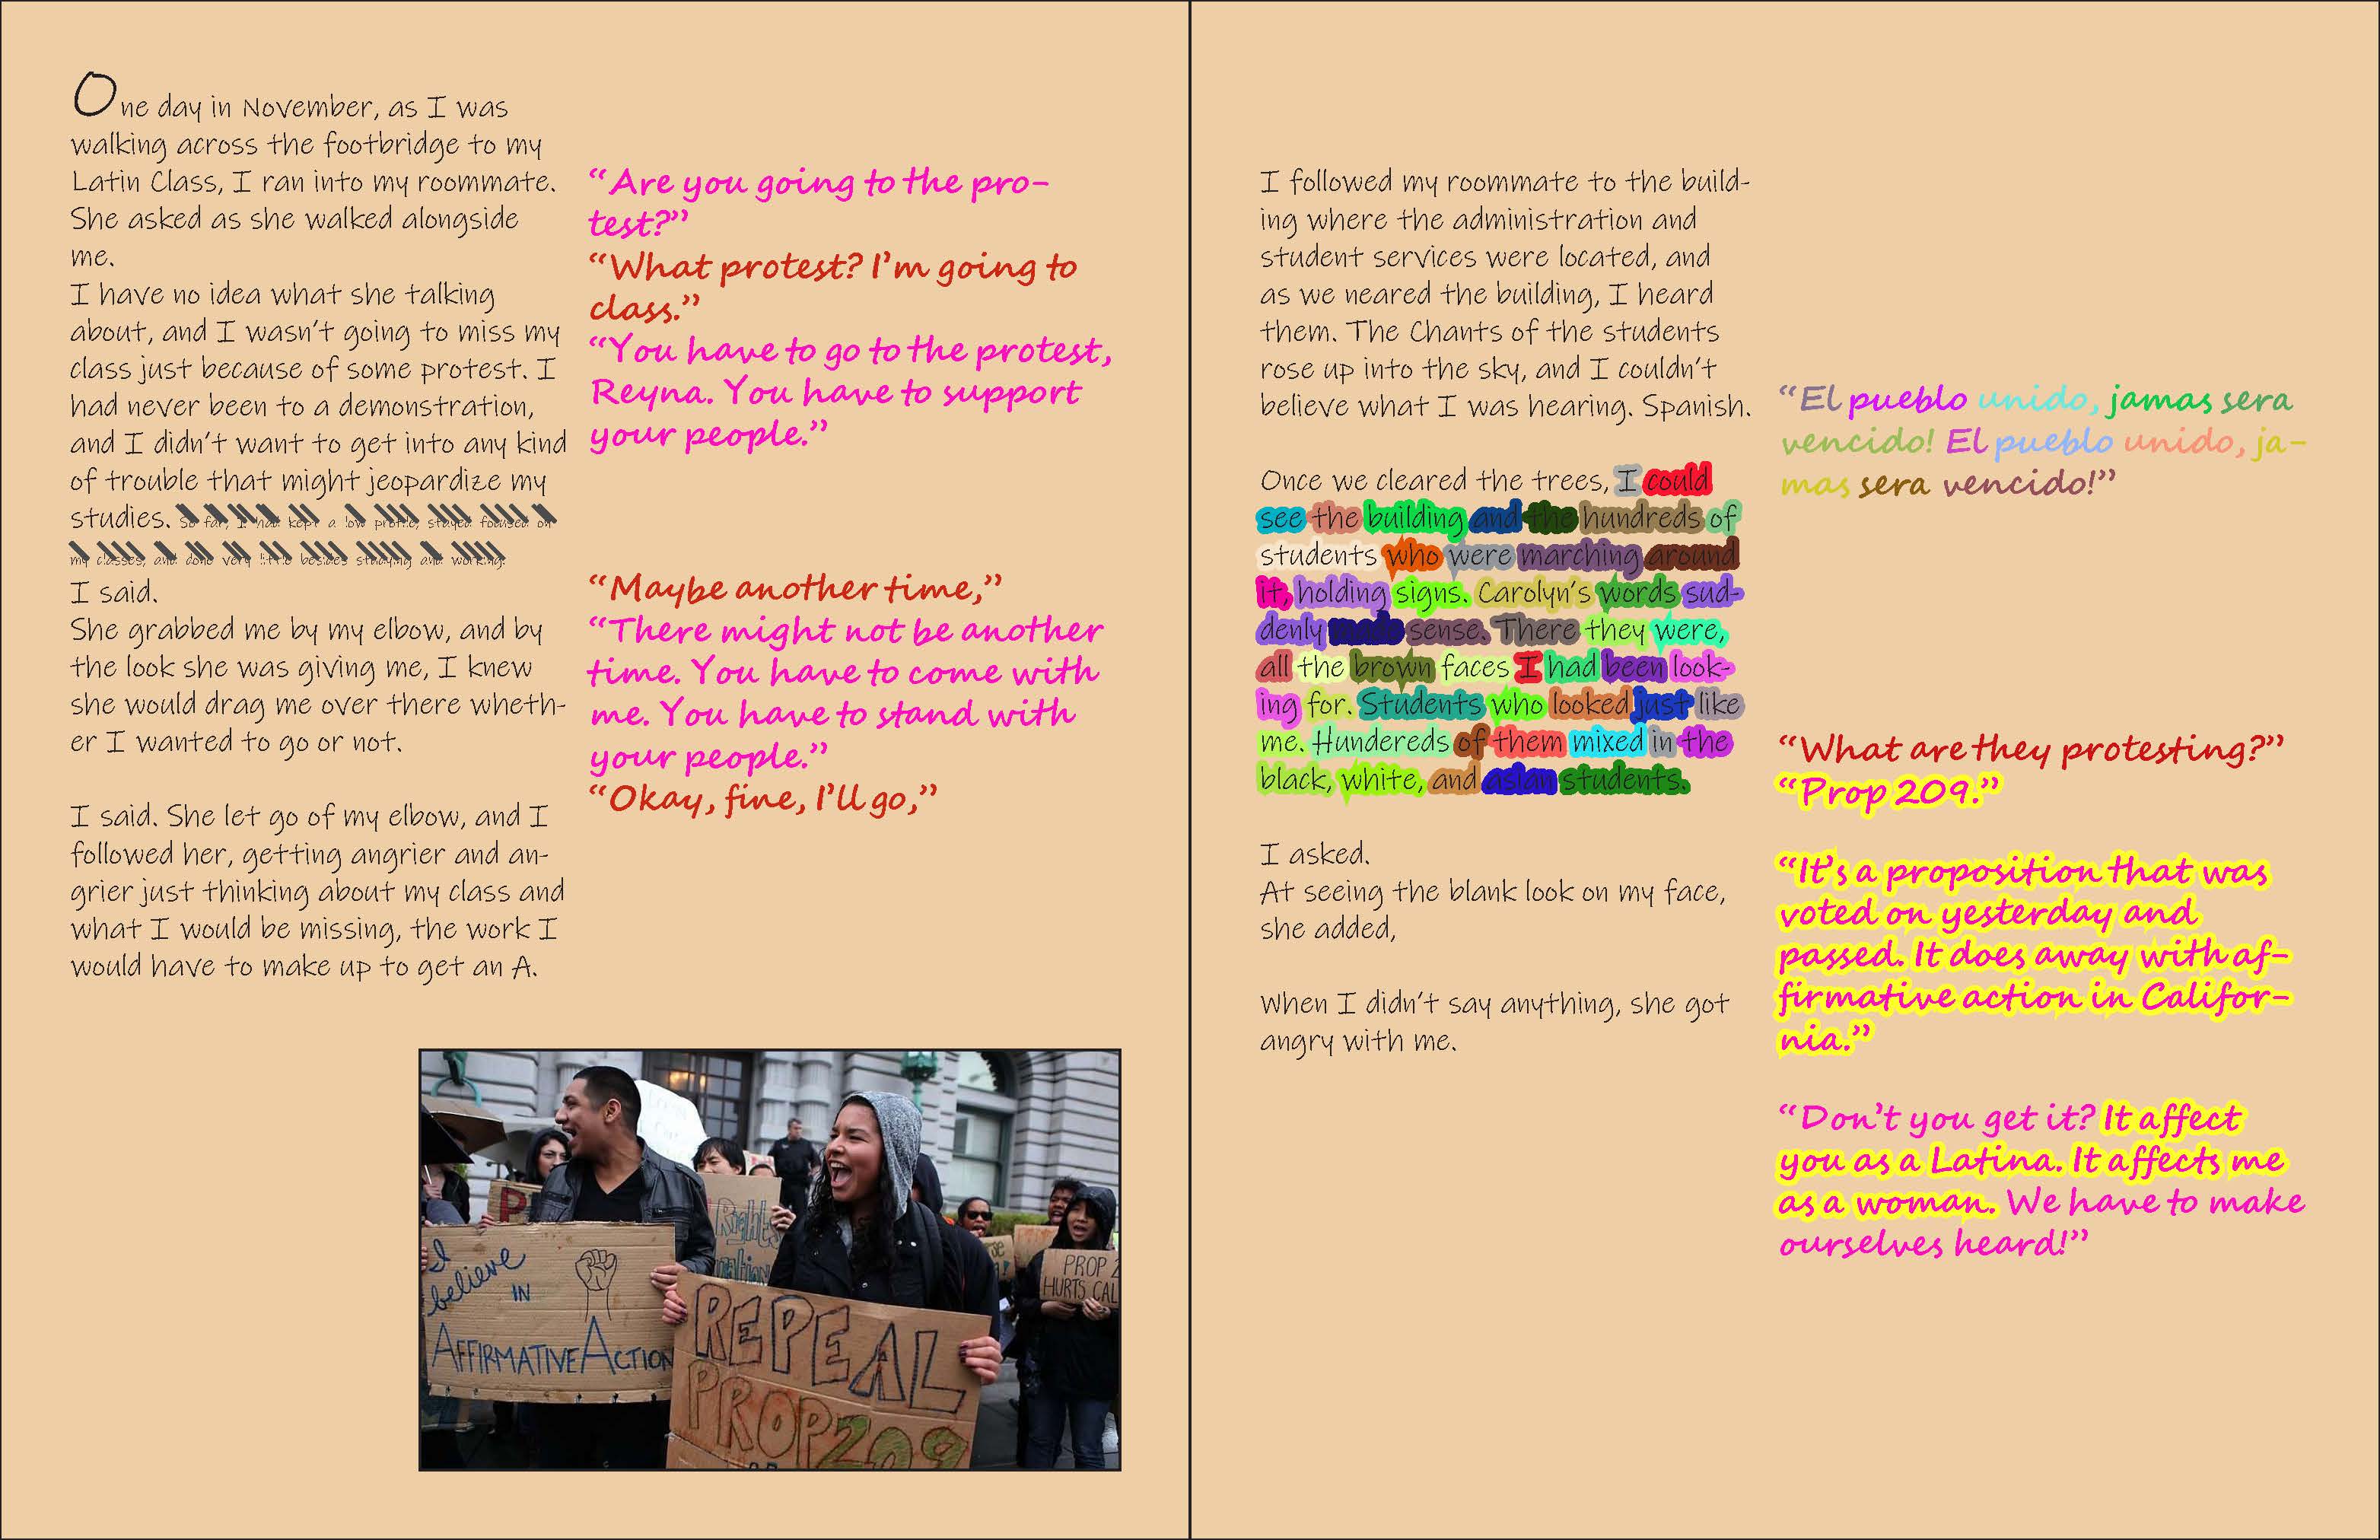 One day in November, as I was
walking across the footbridge to my
Latin Class, I ran into my roommate.
She asked as she walked alongside
me.
I have no idea what she talking
about, and I wasn't going to miss my
class just because of some protest. I
had never been to a demonstration,
and I didn't want to get into any kind
of trouble that might jeopardize my
studies. So far, I had kept a low profile, stayed focused on
my classes, and done very little besides studying and working.
I said.
She grabbed me by my elbow, and by
the look she was giving me, I knew
she would drag me over there wheth-
er I wanted to go or not.
I said. She let go of my elbow, and I
followed her, getting angrier and an-
grier just thinking about my class and
what I would be missing, the work I
would have to make up to get an A.
“Are you going to the pro-
test?”
“What protest? I'm going to
class.”
“You have to go to the protest,
Reyna. You have to support
your people.”
“Maybe another time,”
“There might not be another
time. You have to come with
me. You have to stand with
your people.”
“Okay, fine, I'll go,”
I
believe
IN
AFFIRMATIVE ACTION
REPEAL
PROP 209
Rights
PROP 2
HURTS CAL
I followed my roommate to the build-
ing where the administration and
student services were located, and
as we neared the building, I heard
them. The Chants of the students
rose up into the sky, and I couldn't
believe what I was hearing. Spanish.
Once we cleared the trees, I could
see the building and the hundreds of
students who were marching around
it, holding signs. Carolyn's words sud-
denly made sense. There they were,
all the brown faces I had been look-
ing for. Students who looked just like
me. Hundereds of them mixed in the
black, white, and asian students.
I asked.
At seeing the blank look on my face,
she added,
When I didn't say anything, she got
angry with me.
“El pueblo unido, jamas sera
vencido! El pueblo unido, ja-
mas sera vencido!”
“What are they protesting?”
“Prop 209.”
“It's a proposition that was
voted on yesterday and
passed. It does away with af-
firmative action in Califor-
nia.”
“Don't you get it? It affect
you as a Latina. It affects me
as a woman. We have to make
ourselves heard!”